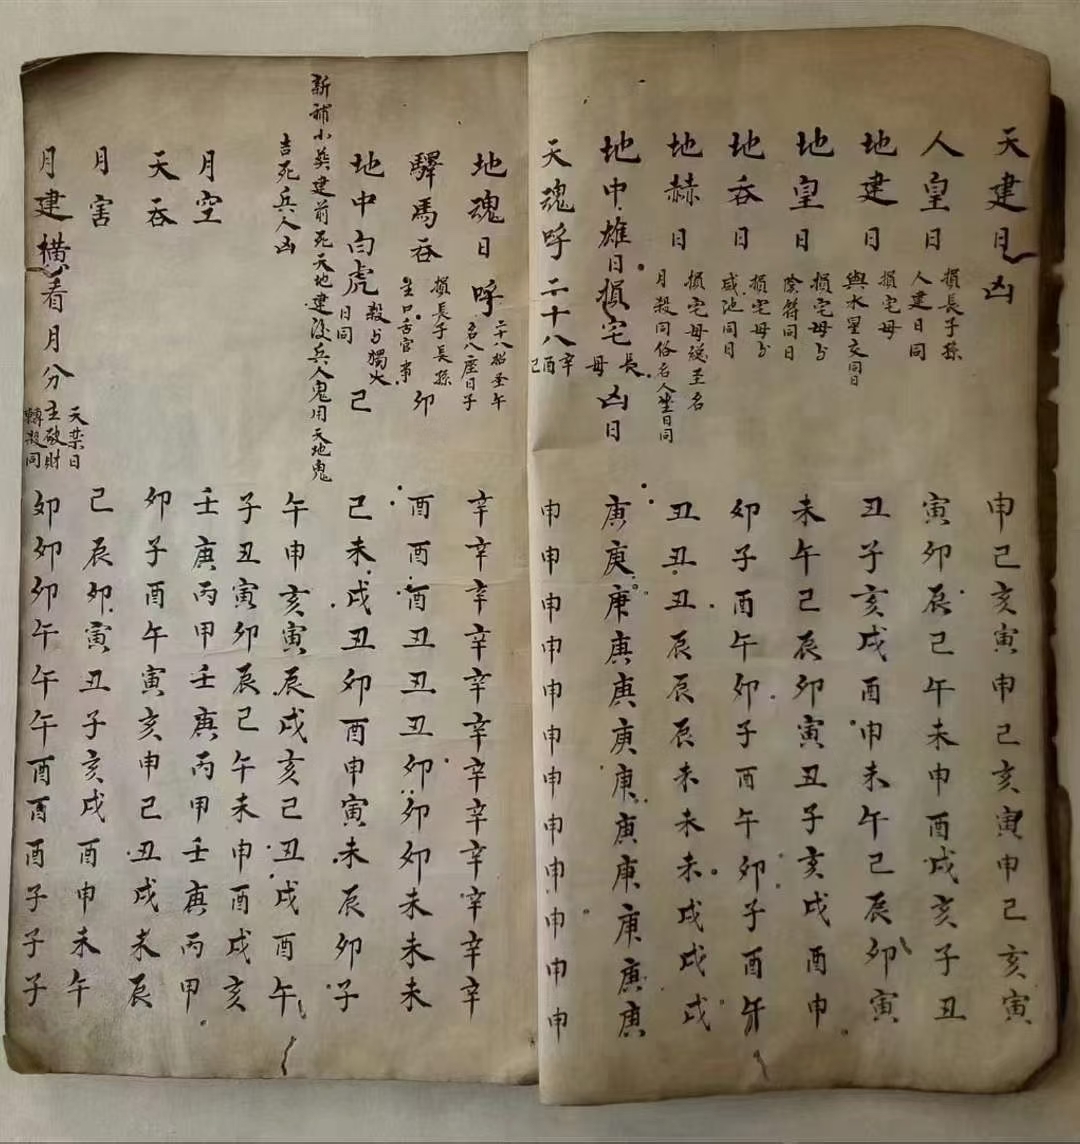 天建日凶 申己亥寅申己亥寅申己亥寅
人皇日 損長子孫 人建日同 寅卯辰己午未申酉戌亥子丑
地建日 損宅母 與水星交同日 丑子亥戌酉申未午己辰卯寅
地皇日 損宅母与 陰符同日 未午己辰卯寅丑子亥戌酉申
地吞日 損宅母与 咸池同日 卯子酉午卯子酉午卯子酉午
地赫日 損宅母 至名 月殺同俗名人坐日同 丑丑丑辰辰辰未未未戌戌戌
地中雄日損宅長母凶日 庚庚庚庚庚庚庚庚庚庚庚庚
天魂呼二十八 辛酉己 申申申申申申申申申申申申
地魂日呼 二十八 午 名八座日子 辛辛辛辛辛辛辛辛辛辛辛辛
驛馬吞 損長子長孫卯 生口舌官事 酉酉酉丑丑丑卯卯卯未未未
地中白虎 殺与獨火 日同 己 己未戌丑卯酉申寅未辰卯子
新補小葬建前死天地建後兵人鬼用天地鬼 午申亥寅辰戌亥己丑戌酉午
吉死兵人凶 子丑寅卯辰己午未申酉戌亥
月空 壬庚丙甲壬庚丙甲壬庚丙甲
天吞 卯子酉午寅亥申己丑戌未辰
月害 己辰卯寅丑子亥戌酉申未午
月建橫看月分 天葉日 主破財 轉殺同 卯卯卯午午午酉酉酉子子子